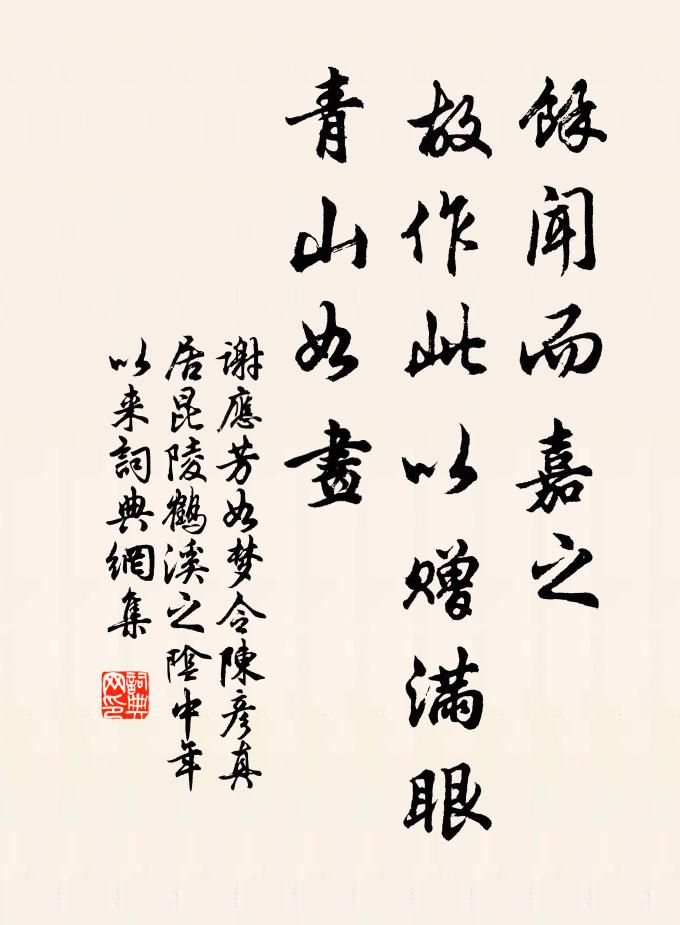 餘聞而嘉之
故作此以赠滿眼
青山如畫
謝應芳如梦令陳彦真
居昆陵鶴溪之陰中年
以来詞典網集
詞典
网印